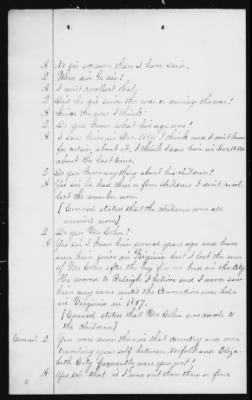 A No sir no more than I have said.
Q When did he die?
A I don't recollect that.
Q Did he die since the war or during the war?
A Since the war I think.
Q Do you know what his age was?
A I saw him in Dec. 1880 I think and I don't know
for certain about it. I think I saw him in Dec 1880
about the last time.
Q Do you know anything about his children?
A Yes sir he had three or four children I don't recol-
lect the number now.
[Counsel states that the children were all
minors now]
Q Do you Mr. Cohn?
A Yes sir I knew him several years ago and have
seen him since in Virginia but I lost the run
of Mr Cohn after the big fire we had in the City.
He moved to Raleigh I believe and I never saw
him any more until the Convention was held
in Virginia in 1897.
[Counsel states that Mr Cohn was uncle to
the children]
Counsel Q You were down there in that country and were
traveling yourself between Norfolk and Eliza-
beth City frequently were you not?
A Yes sir that is I was out there three or four